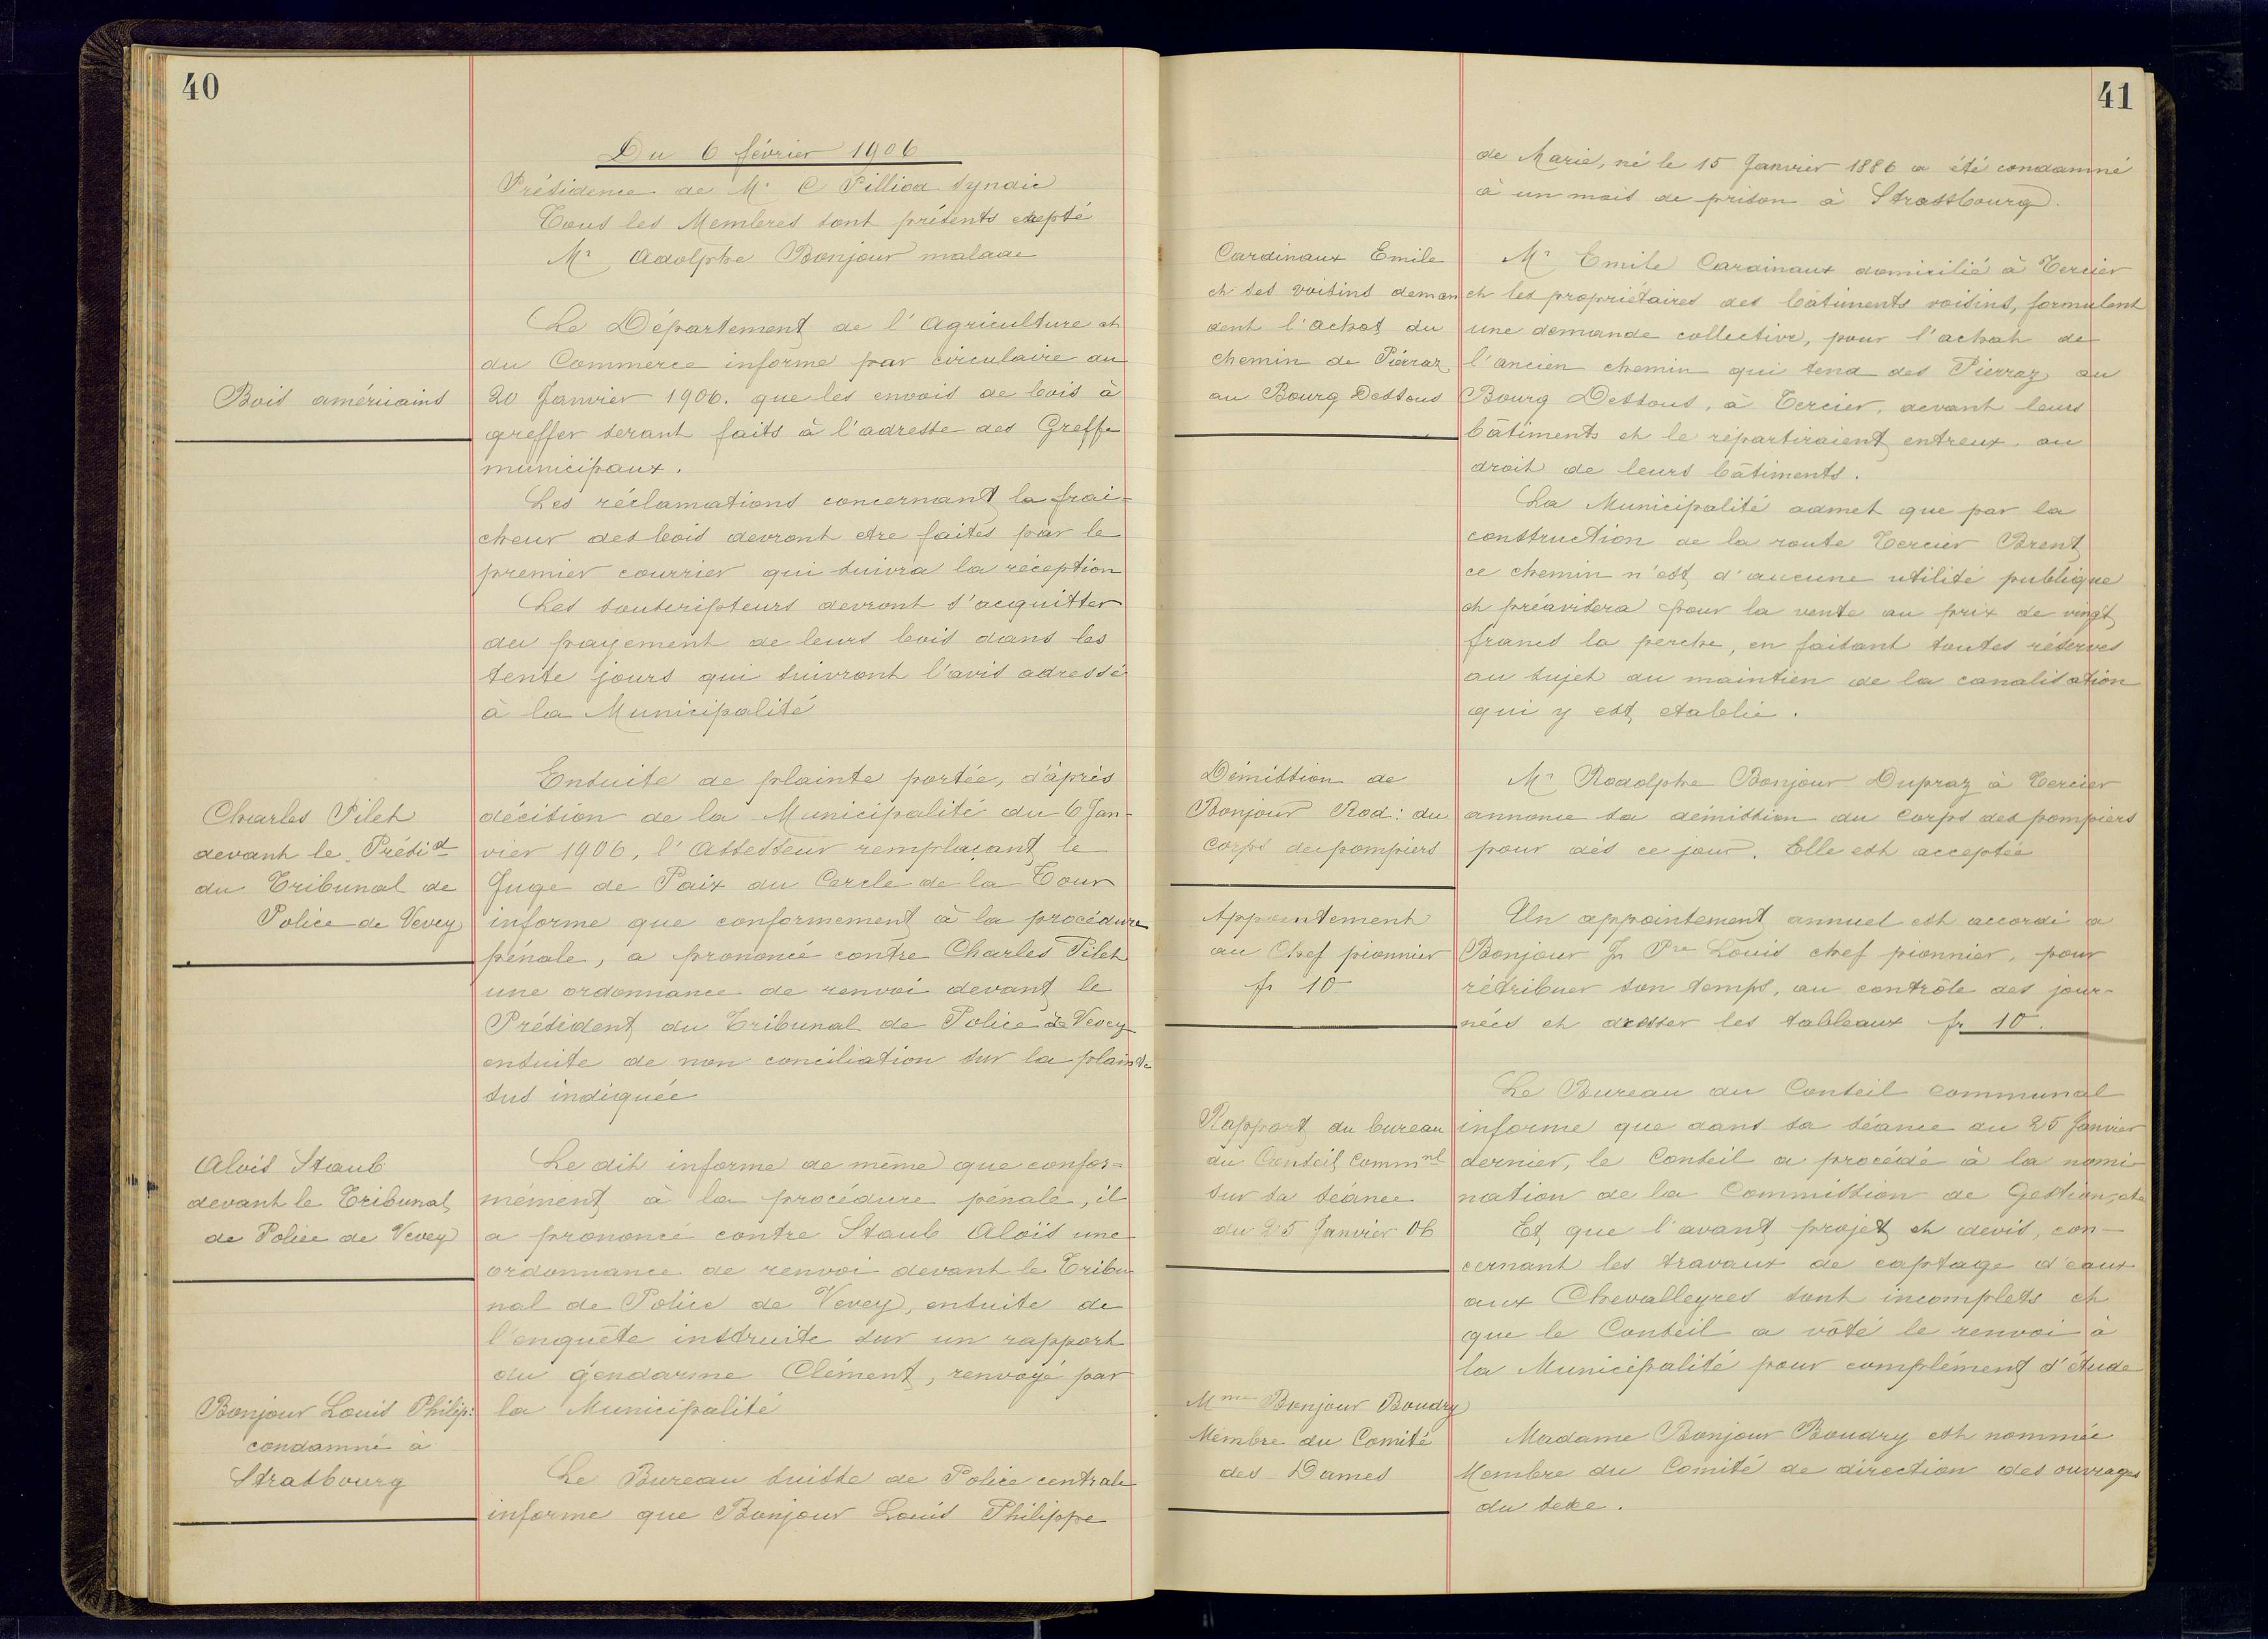 40
Du 6 février 1906
Présidence de Mr C Pilliod Syndic
Tous les Membres sont présents exepté
Mr Adolphe Bonjour malade
Bois américains
Le Département de l'Agriculture et
du Commerce informe par circulaire du
20 Janvier 1906. que les envois de bois à
greffer seront faits à l'adresse des Greffe
municipaux.
Les réclamations concernant la frai=
cheur des bois devront etre faites par le
premier courrier qui suivra la réception
Les souscripteurs devront s'acquitter
du payement de leurs bois dans les
tente jours qui suivront l'avis adressé
à la Municipalité
Charles Pilet
devant le Présid
du Tribunal de
Police de Vevey
Ensuite de plainte portée, d'après
décision de la Municipalité du 6 Jan-
vier 1906, l'Assesseur remplaçant le
Juge de Paix du Cercle de la Tour
informe que conformement à la procédure
pénale, a prononcé contre Charles Pilet
une ordonnance de renvoi devant le
Président du Tribunal de Police de Vevey
ensuite de non conciliation sur la plainte
sus indiquée
Aloïs Staub
devant le Tribunal
de Police de Vevey
Le dit informe de même que confor=
mément à la procédure pénale, il
a prononcé contre Staub Aloïs une
ordonnance de renvoi devant le Tribu
nal de Police de Vevey, ensuite de
l'enquête instruite sur un rapport
du gendarme Clément, renvoyé par
la Municipalité
Bonjour Louis Philip:
condamné à
Strasbourg
Le Bureau suisse de Police centrale
informe que Bonjour Louis Philippe
41
de Marie, né le 15 Janvier 1886 a été condamné
à un mois de prison à Strassbourg.
Cardinaux Emile
et ses voisins deman
dent l'achat du
chemin de Piérraz
au Bourg Dessous
Mr Emile Cardinaux domicilié à Tercier
et les propriétaires des bâtiments voisins, formulent
une demande collective, pour l'achat de
l'ancien chemin qui tend des Pierraz au
Bourg Dessous, à Tercier, devant leurs
bâtiments et le répartiraient entreux. au
droit de leurs bâtiments.
La Municipalité admet que par la
construction de la route Tercier Brent
ce chemin n'est d'aucune utilité publique
et préavisera pour la vente au prix de vingt
francs la perche, en faisant toutes réserves
au sujet du maintien de la canalisation
qui y est etablie.
Démission de
Bonjour Rod: du
Corps des pompiers
Mr Rodolphe Bonjour Dupraz à Tercier
annonce sa démission du Corps des pompiers
pour dès ce jour. Elle est acceptée
Appointement
au Chef pionnier
fr 10
Un appointement annuel est accordé a
Bonjour Jn Pre Louis chef pionnier, pour
rétribuer son temps, au contrôle des jour-
nées et dresser les tableaux fr 10.
Rapport du bureau
du Conseil Commnl
sur sa séance
du 25 Janvier 06
Le Bureau du Conseil communal
informe que dans sa séance du 25 Janvier
dernier, le Conseil a procédé à la nomi-
nation de la Commission de Gestion, etc
Et que l'avant projet et devis, con-
cernant les travaux de captage d'eaux
aux Chevalleyres sont incomplets et
que le Conseil a vôté le renvoi à
la Municipalité pour complément d'étude
Mme Bonjour Boudry
Membre du Comité
des Dames
Madame Bonjour Boudry est nommée
Membre du Comité de direction des ouvrages
du sexe.